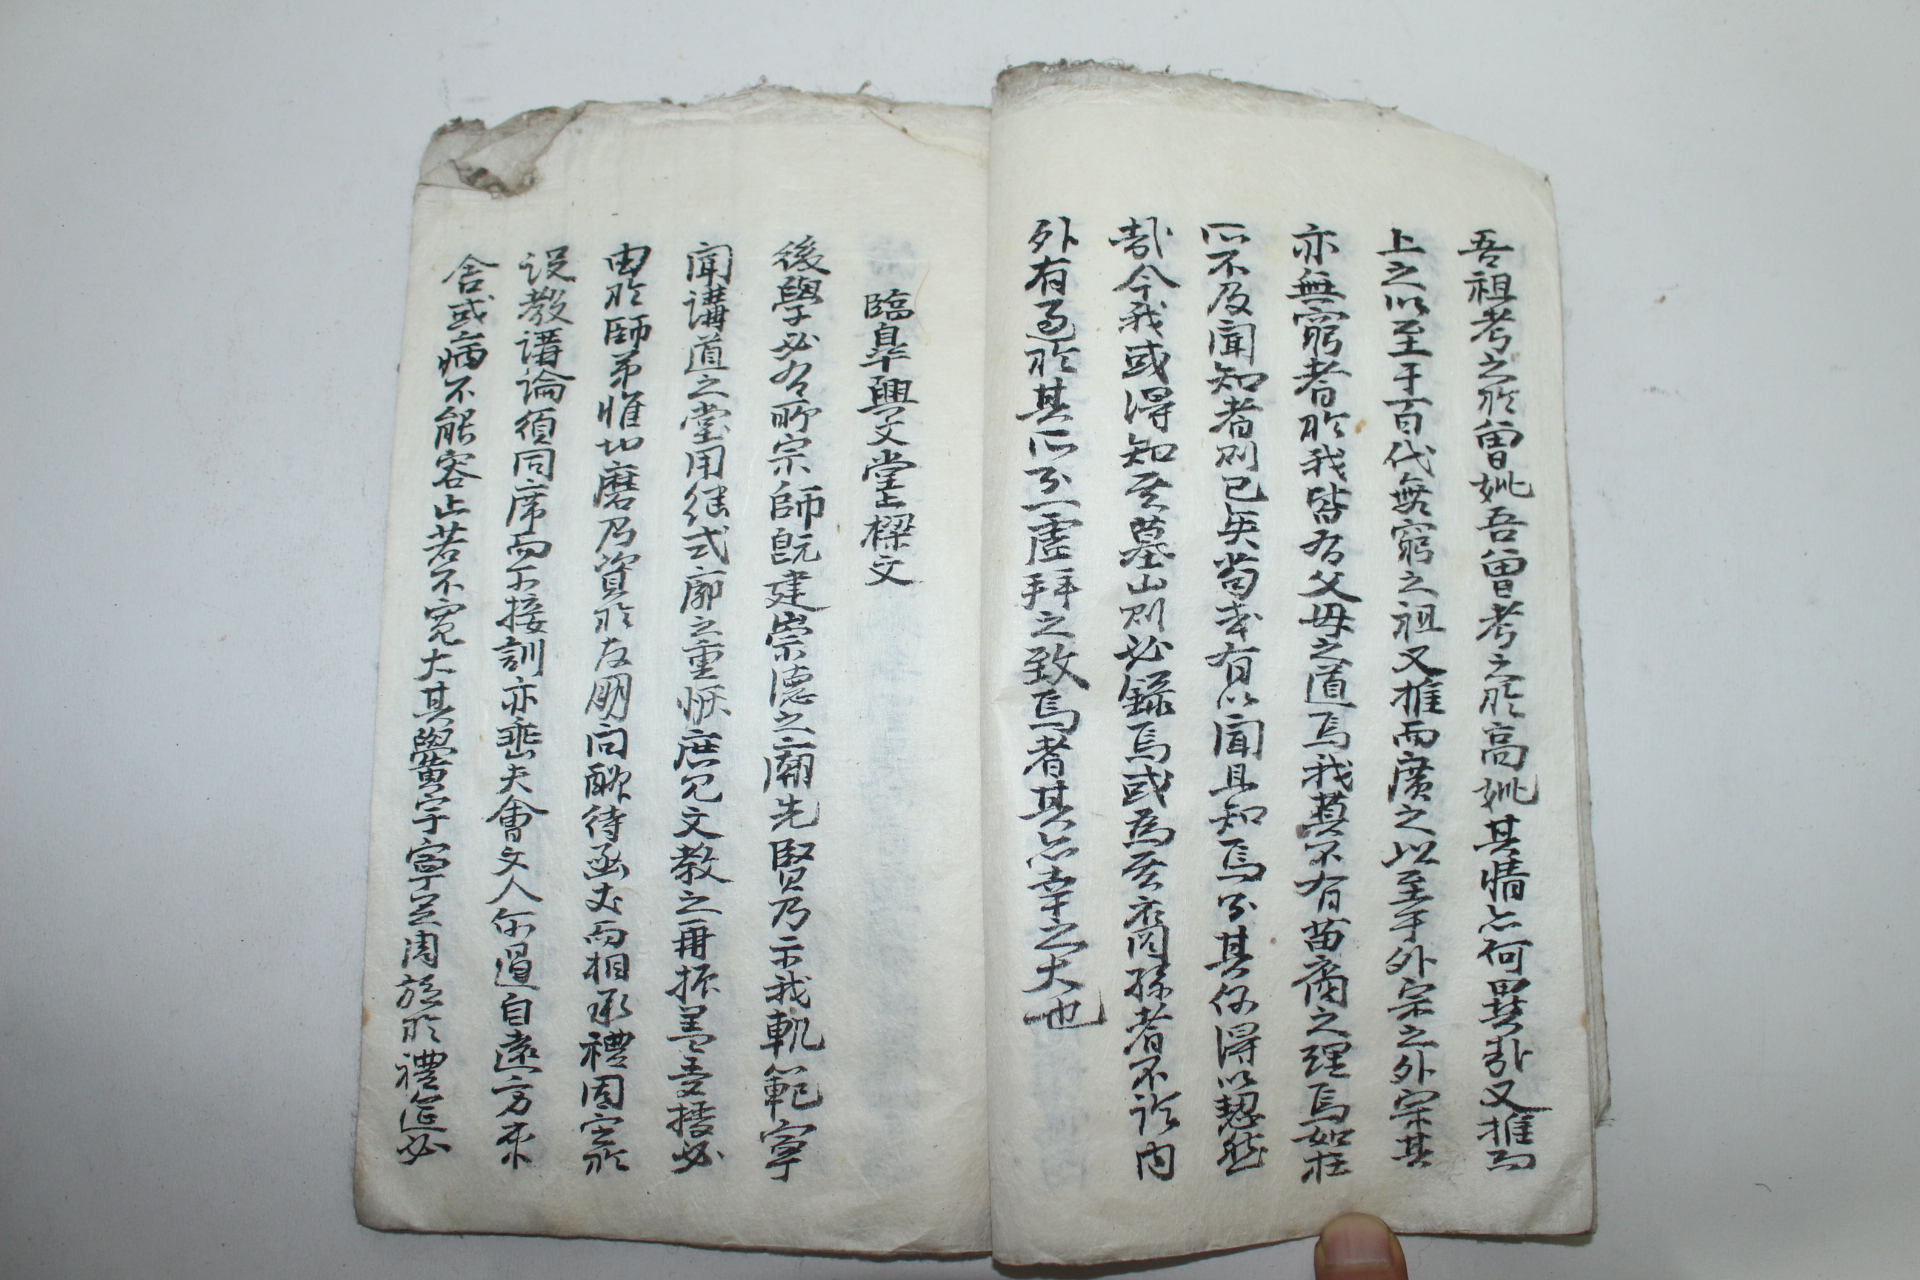 吾祖考之於曾妣吾曾考之於高妣其情亦何異哉又推而
上之以至于百代無窮之祖又推而廣之以至于外宗之外宗其
亦無窮者於我皆有父母之道焉我莫不有苗裔之理焉如在
所不及聞知者則已矣苟或有以聞且知焉則其何得以恝然
哉今我或得知其墓山則必錄焉或為其裔孫者不論內
外有過於其所則一虔拜之致焉者其亦幸之大也
臨皐興文堂上樑文
後學必有所宗師旣建崇德之廟先賢乃示我軌範寧
聞講道之堂用継式廓之重恢庶見文教之再振盖受授必
由於師弟惟切磨乃資於友朋問酬待函丈而相承禮固宜於
設教講論須同席而可接訓亦垂夫會文人不遐自遠方來
舍或病不能容止若不寬大其黌宇寧足周旋於禮筵必